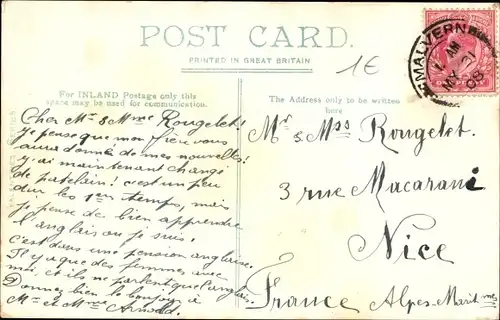 POST CARD.
PRINTED IN GREAT BRITAIN
1€
MALVERN
AM
MY 21
08
For INLAND Postage only this
space may be used for communication.
The Address only to be written
here
Cher Mr & Mme Rougelet!
Je pense que mon frère vous
aura donné de mes nouvelles!
J'ai maintenant changé
de patelain! c'est un peu
dur les 1ers temps, mais
je pense de bien apprendre
l'anglais ou je suis.
C'est dans une pension anglaise.
Il y a que des femmes avec
moi, et ils ne parlent que l'anglais.
Donnez bien le bonjour à
Mr et Mme Arnold.
Mr & Mss Rougelet.
3 rue Macarani
Nice
France Alpes-Maritmes